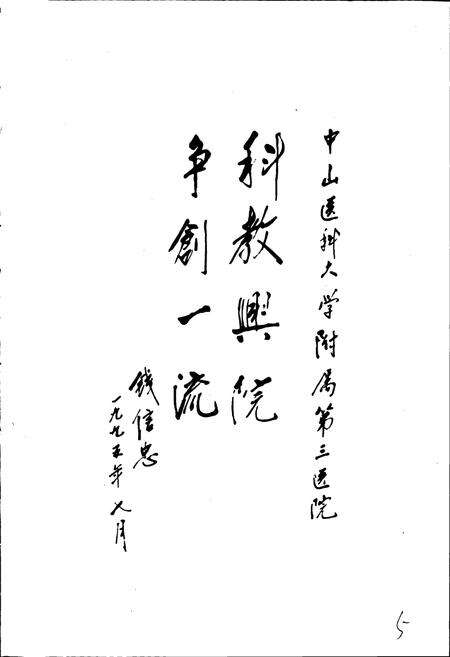 中山医科大学附属第三医院
科教興院
争創一流
錢信忠
一九九五年七月
5